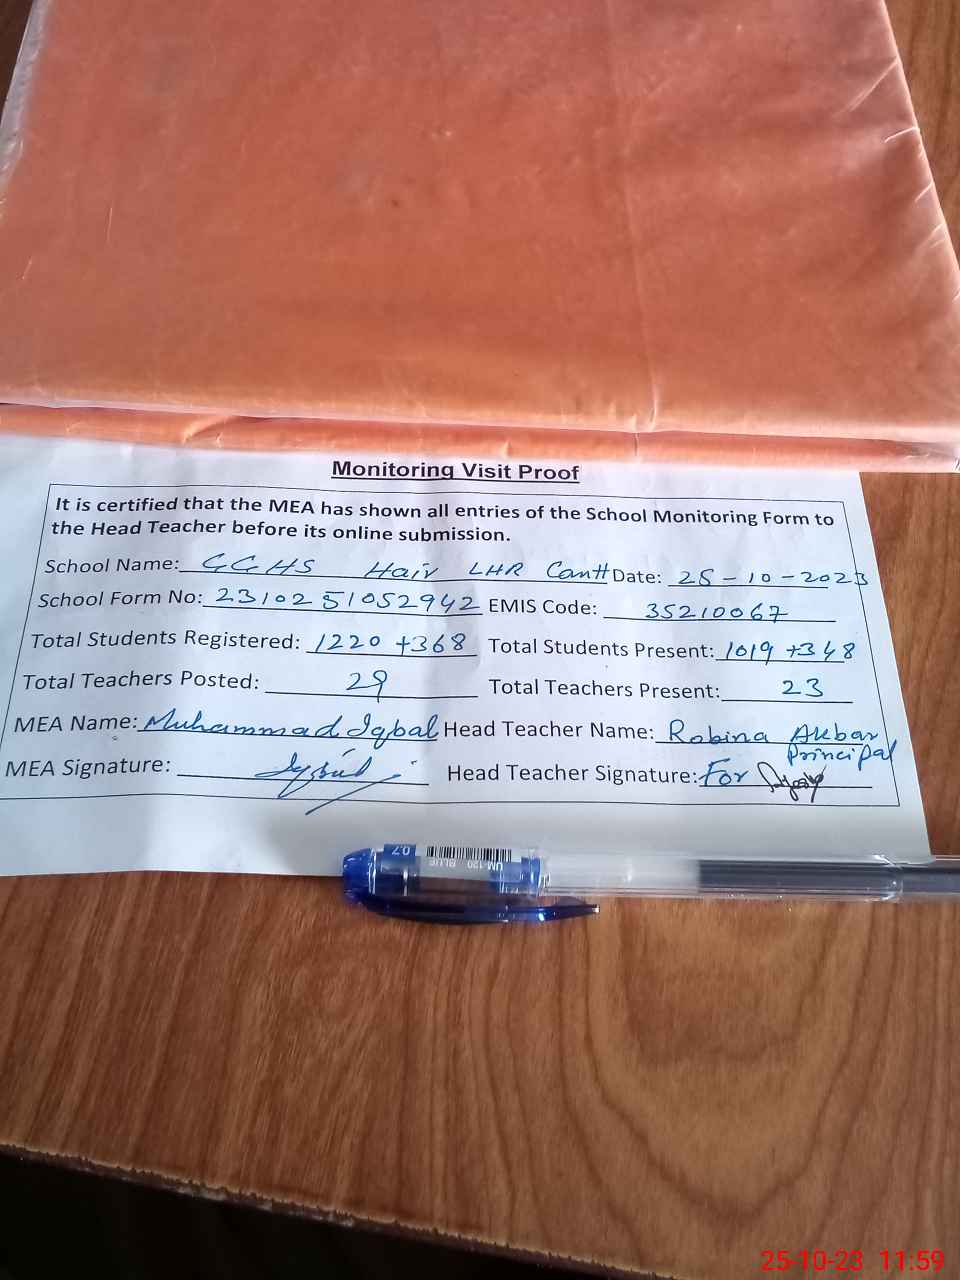 Monitoring Visit Proof
It is certified that the MEA has shown all entries of the School Monitoring Form to
the Head Teacher before its online submission.
School Name: GGHS Hair LHR Cantt Date: 25-10-2023
School Form No: 2310251052942 EMIS Code: 35210067
Total Students Registered: 1220+368 Total Students Present: 1019+348
Total Teachers Posted: 29 Total Teachers Present: 23
MEA Name: Muhammad Iqbal Head Teacher Name: Robina Akbar
Principal
MEA Signature: Head Teacher Signature: For
0.7 UM-120 BLUE
25-10-23 11:59